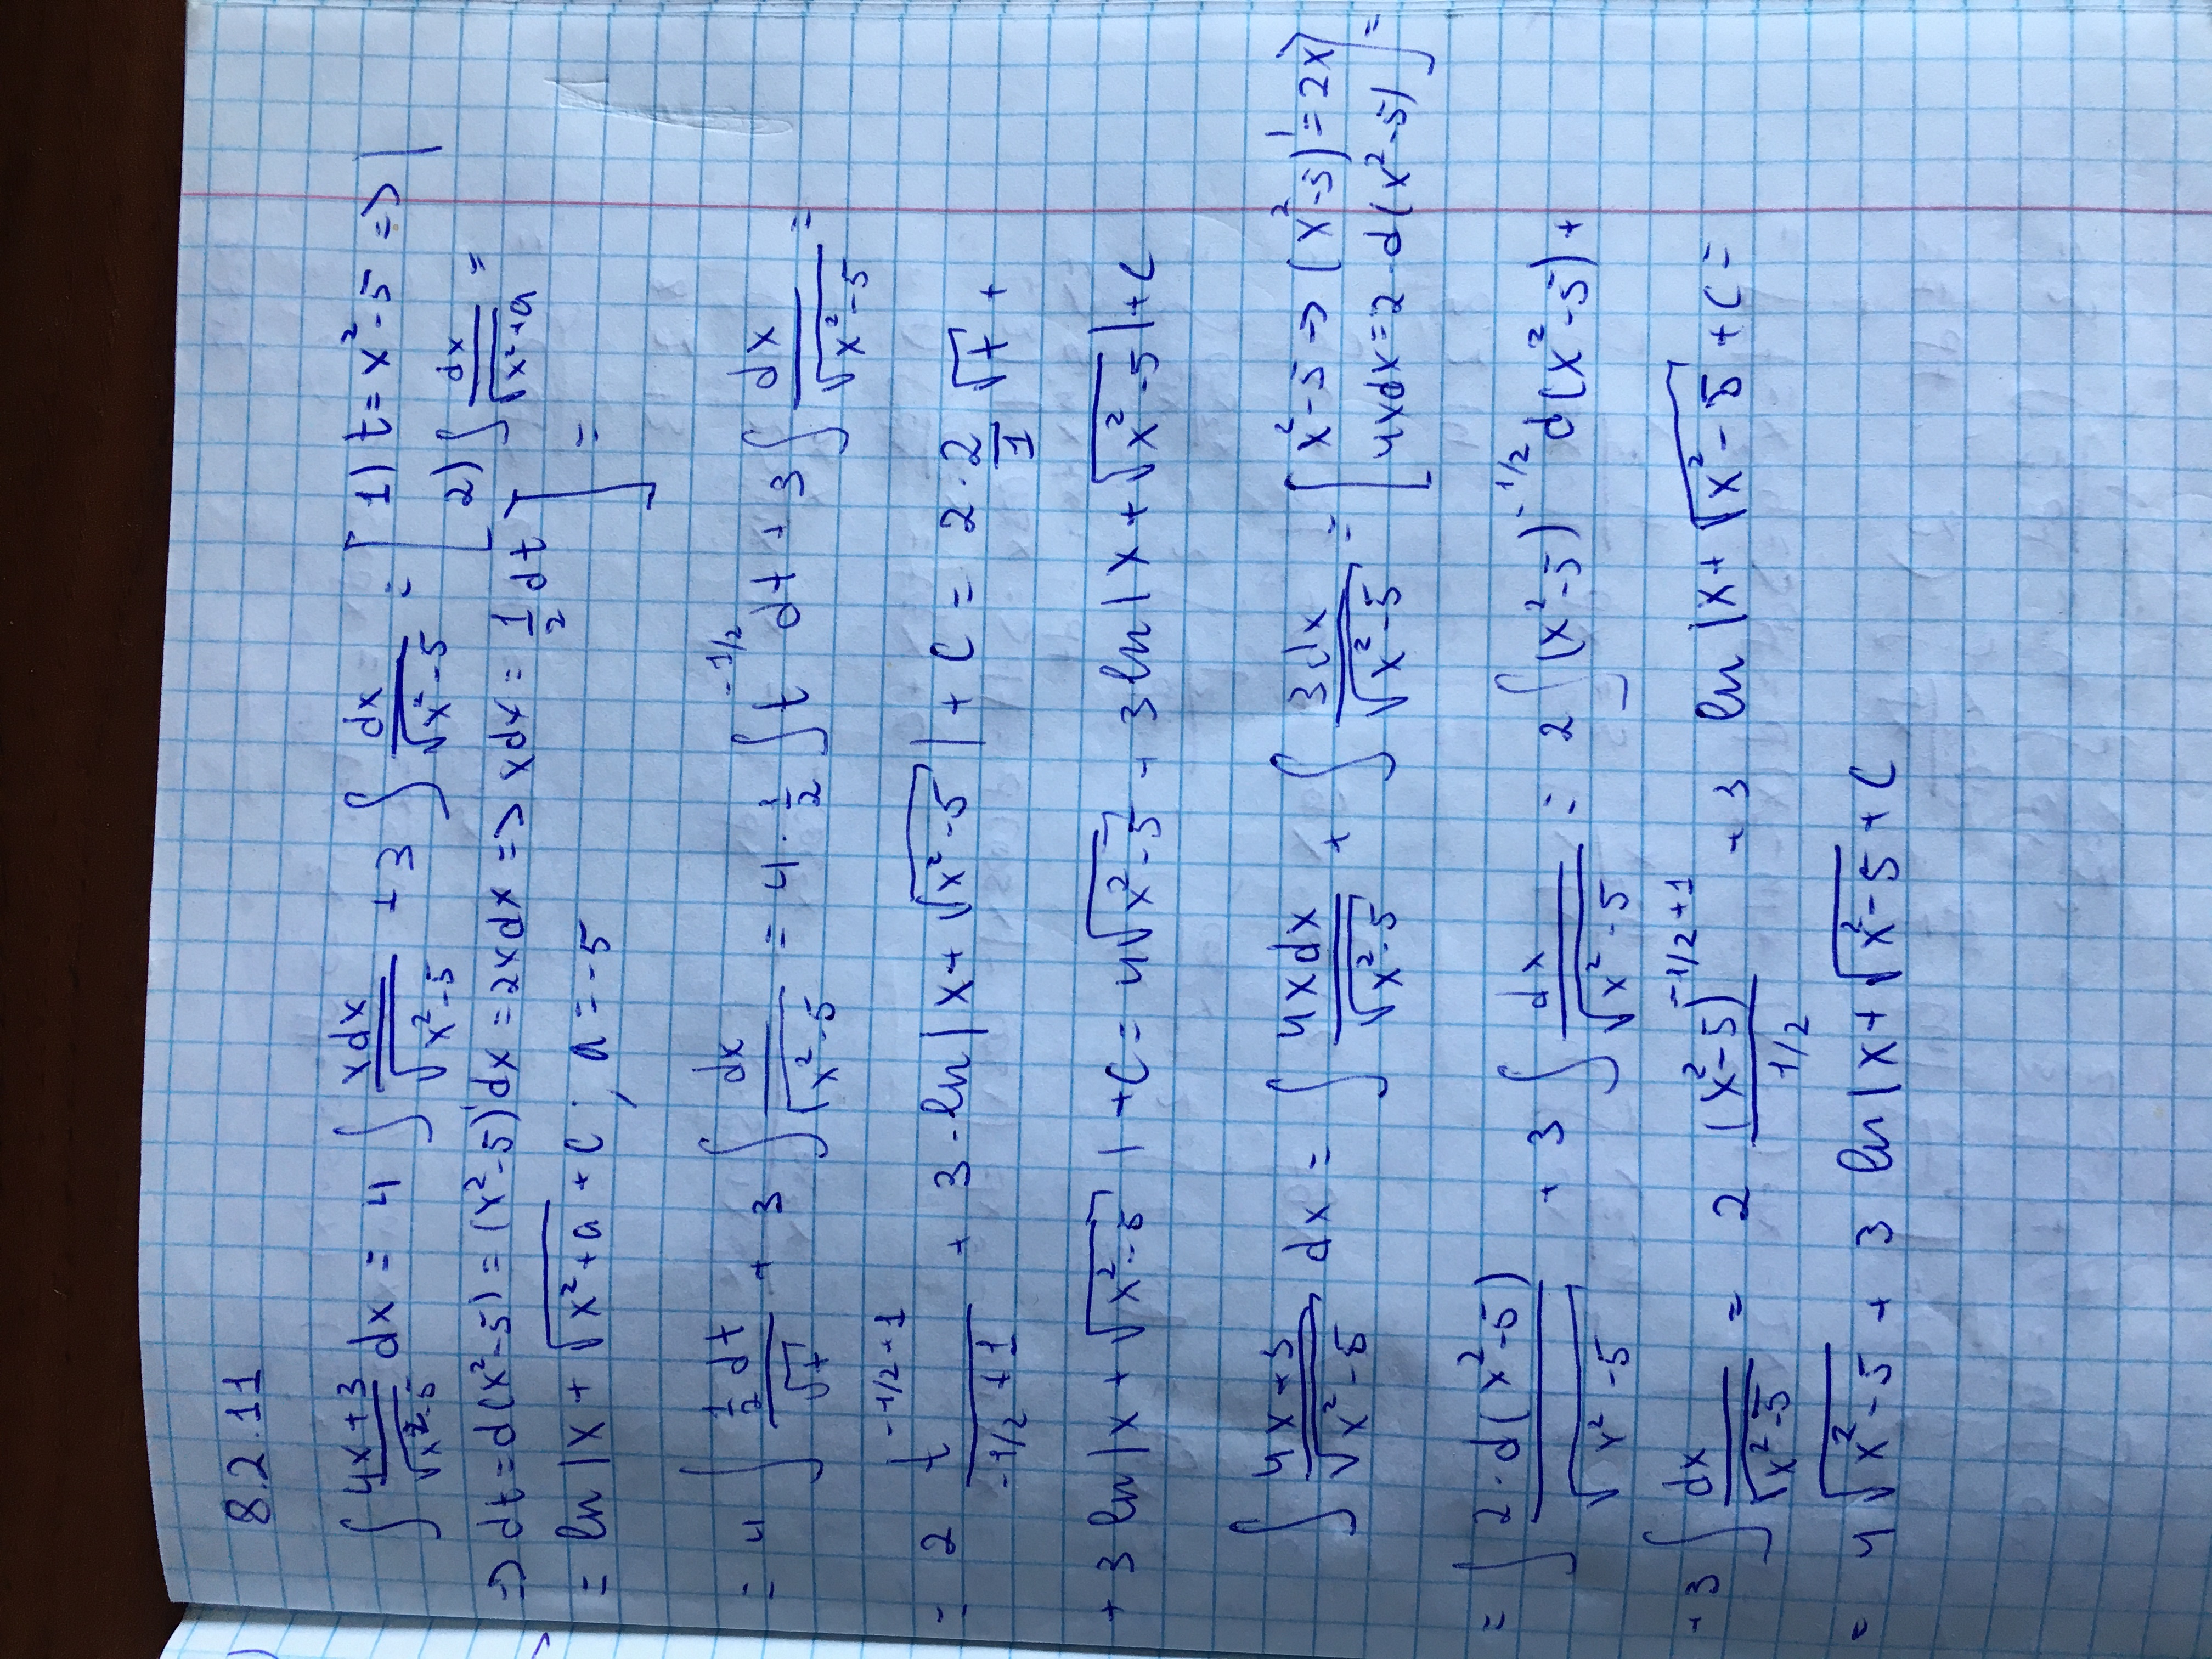 8.2.11
∫ (4x+3)/√(x²-5) dx = 4 ∫ xdx/√(x²-5) + 3 ∫ dx/√(x²-5) = [ 1) t = x²-5 => |
2) ∫ dx/√(x²+a) =
=> dt = d(x²-5) = (x²-5)' dx = 2xdx => xdx = 1/2 dt
= ln |x + √(x²+a) + C ; a = -5 ] =
= 4 ∫ (1/2 dt)/√t + 3 ∫ dx/√(x²-5) = 4 · 1/2 ∫ t^(-1/2) dt + 3 ∫ dx/√(x²-5) =
= 2 t^(-1/2+1)/(-1/2+1) + 3 · ln |x + √(x²-5)| + C = 2 · 2/1 √t +
+ 3 ln |x + √(x²-5)| + C = 4√(x²-5) + 3 ln |x + √(x²-5)| + C
∫ (4x+3)/√(x²-5) dx = ∫ 4xdx/√(x²-5) + ∫ 3dx/√(x²-5) = [ x²-5 -> (x²-5)' = 2x
4xdx = 2 · d(x²-5) ] =
= ∫ 2·d(x²-5)/√(x²-5) + 3 ∫ dx/√(x²-5) = 2 ∫ (x²-5)^(-1/2) d(x²-5) +
+ 3 ∫ dx/√(x²-5) = 2 (x²-5)^(-1/2+1)/(1/2) + 3 ln |x + √(x²-5) + C =
= 4√(x²-5) + 3 ln |x + √(x²-5) + C